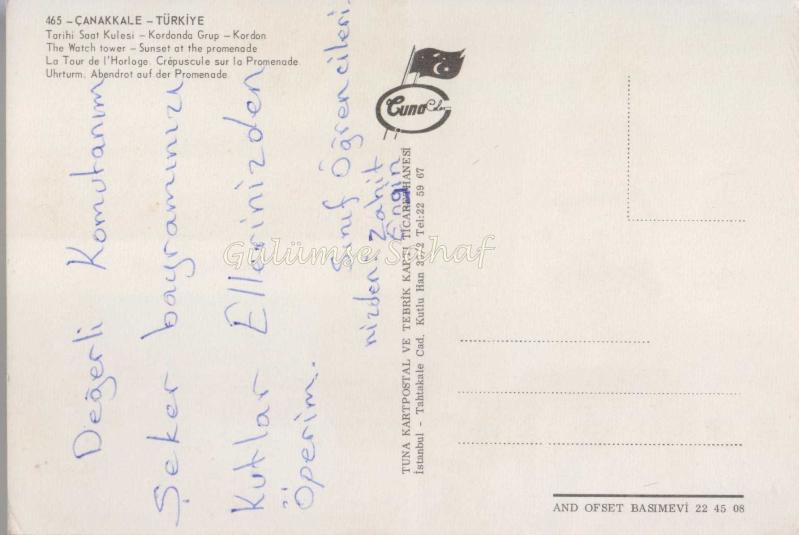 465 - ÇANAKKALE - TÜRKİYE
Tarihi Saat Kulesi - Kordonda Grup - Kordon
The Watch tower - Sunset at the promenade
La Tour de l'Horloge. Crépuscule sur la Promenade
Uhrturm. Abendrot auf der Promenade
Değerli Komutanım
Şeker bayramınızı
Kutlar Ellerinizden
öperim.
Sınıf Öğrencileri.
nizden: Zahit
Engin
Tuna Color
TUNA KARTPOSTAL VE TEBRİK KARTI TİCARETHANESİ
İstanbul - Tahtakale Cad. Kutlu Han 30/2 Tel: 22 59 67
Gülümse Sahaf
AND OFSET BASIMEVİ 22 45 08